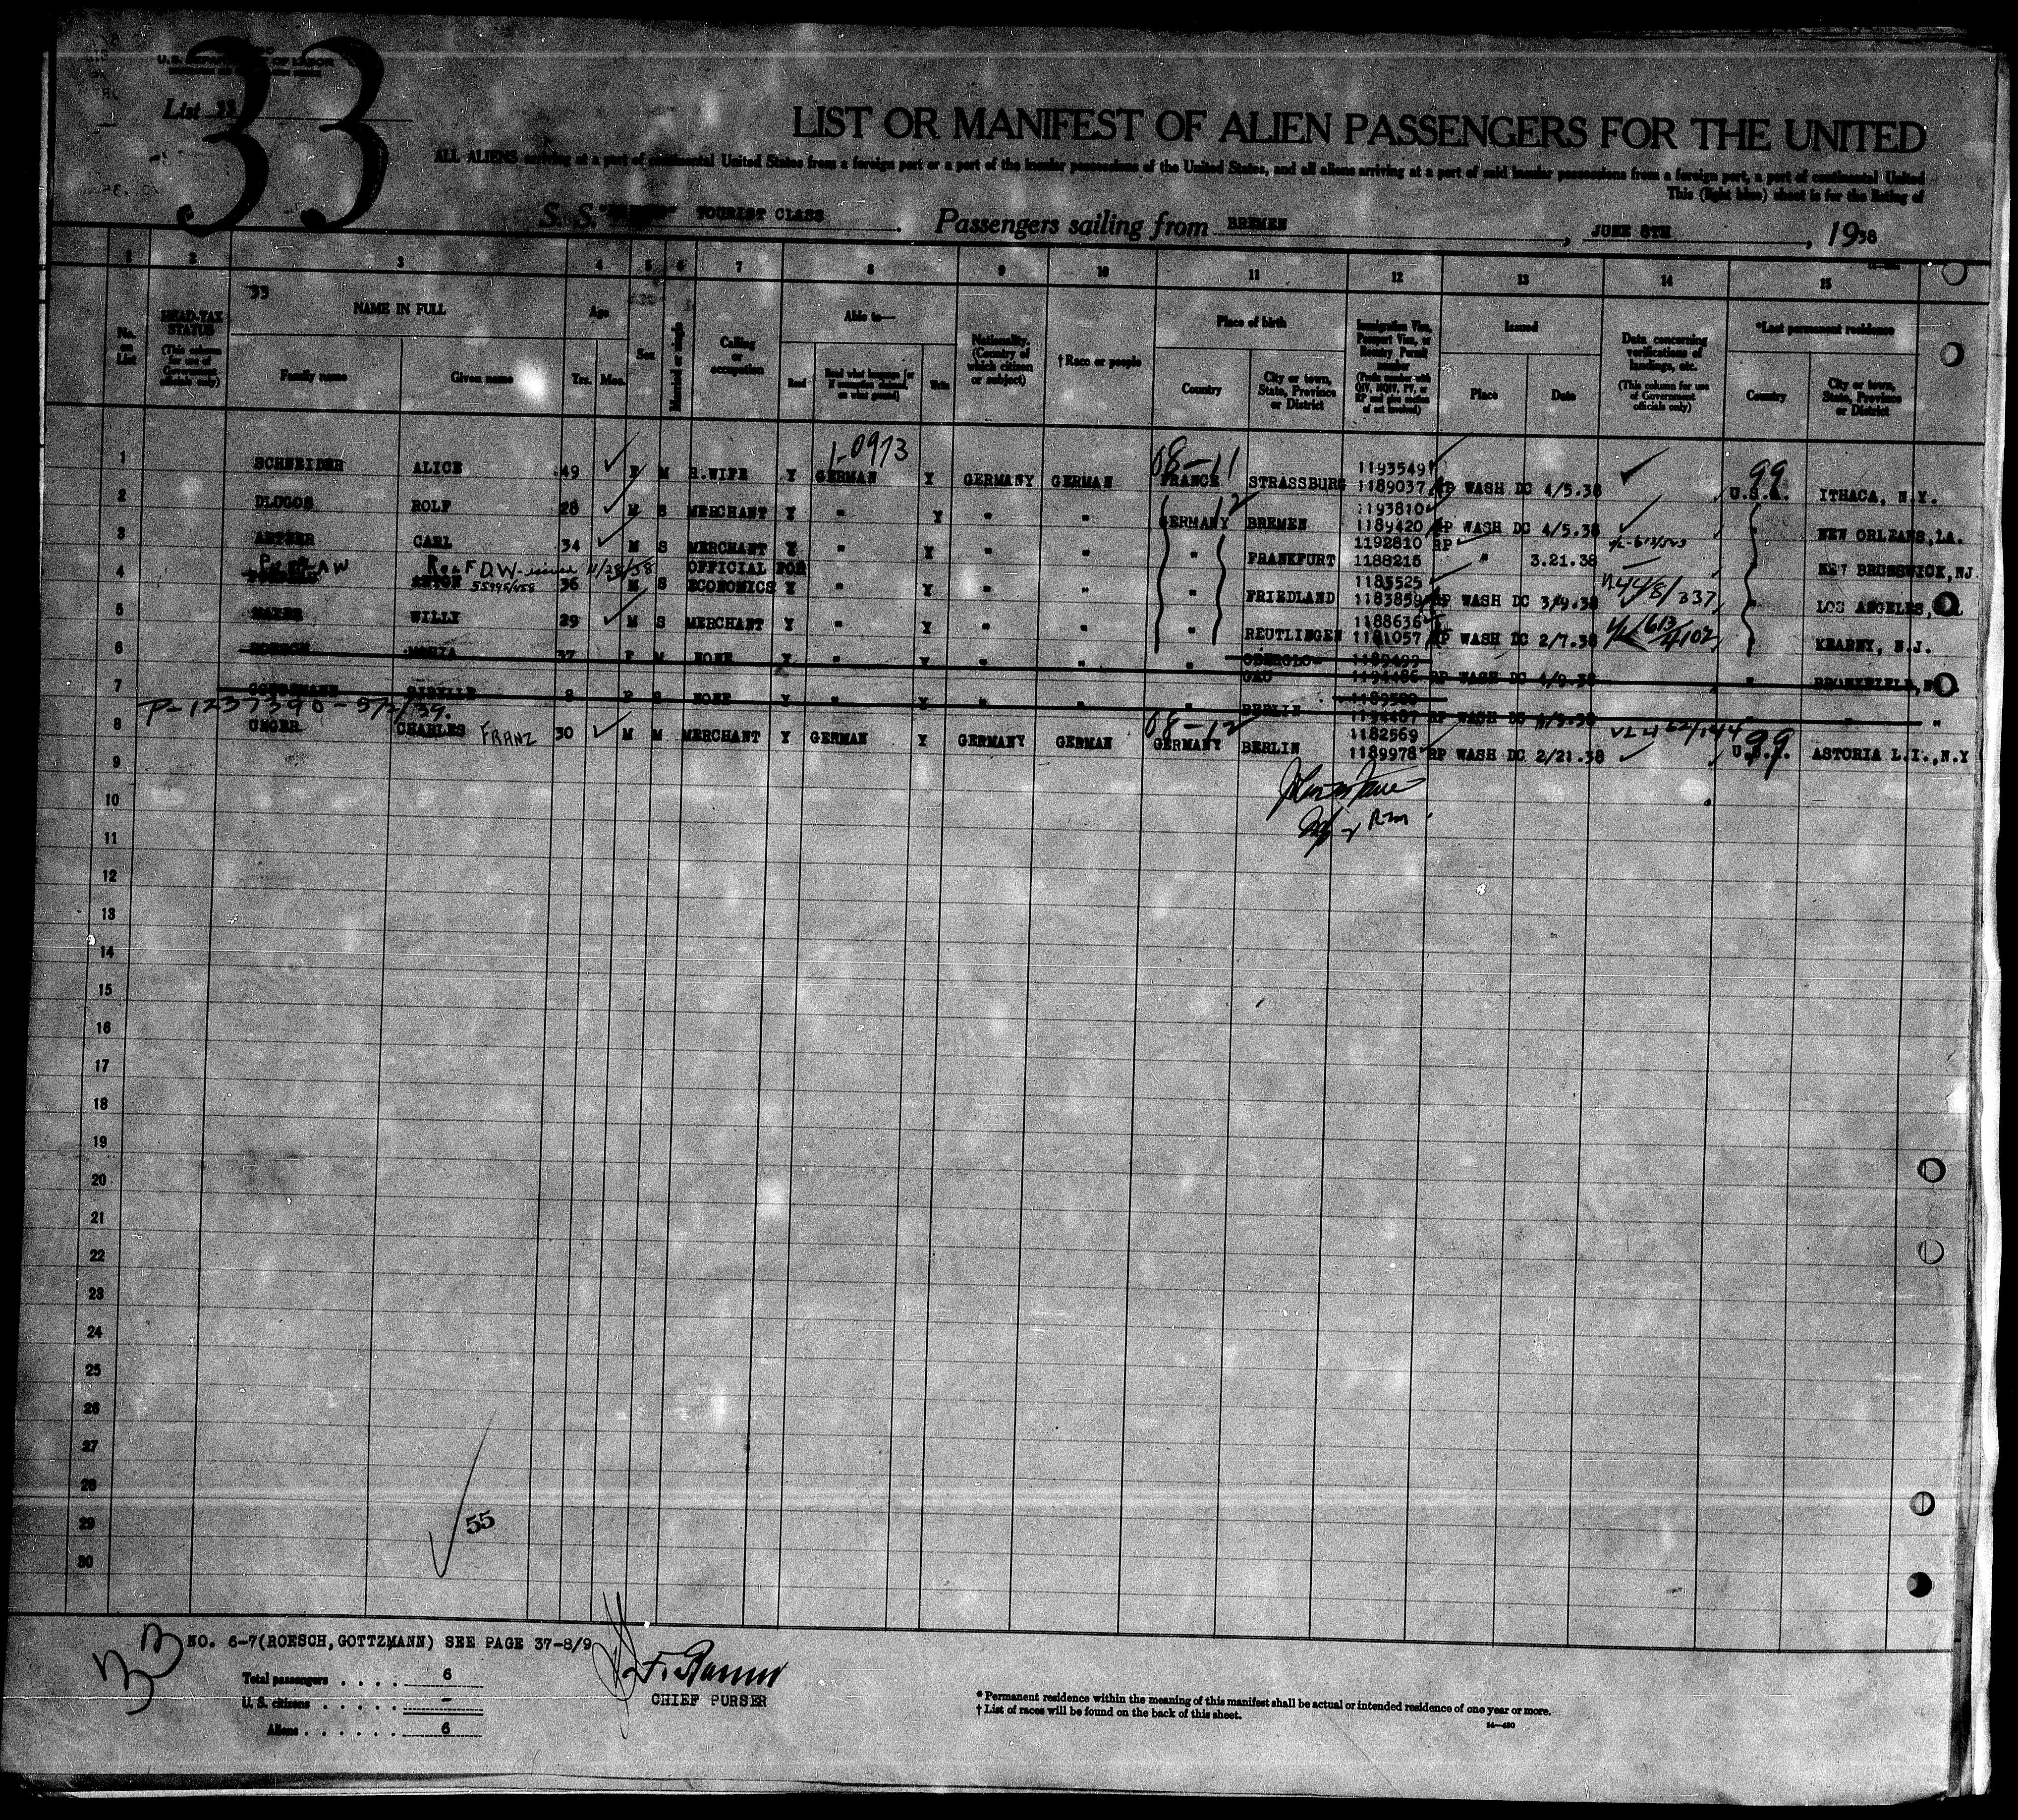 U.S. DEPARTMENT OF LABOR
List 33
33
LIST OR MANIFEST OF ALIEN PASSENGERS FOR THE UNITED
ALL ALIENS arriving at a port of continental United States from a foreign port or a port of the insular possessions of the United States, and all aliens arriving at a port of said insular possessions from a foreign port, a port of continental United
This (light blue) sheet is for the listing of
S. S. TOURIST CLASS. Passengers sailing from BREMEN, JUNE 8TH, 1938
1 2 3 4 5 6 7 8 9 10 11 12 13 14 15
33
No. on List
HEAD-TAX STATUS (This column for use of Government officials only)
NAME IN FULL Family name Given name
Age Yrs. Mos.
Sex
Married or single
Calling or occupation
Able to— Read Read what language [or if exemption claimed, on what ground] Write
Nationality. (Country of which citizen or subject)
† Race or people
Place of birth Country City or town, State, Province or District
Immigration Visa, Passport Visa, or Reentry Permit number (Prefix number with QIV, NQIV, PV, or RP and give section of act involved)
Issued Place Date
Data concerning verifications of landings, etc. (This column for use of Government officials only)
*Last permanent residence Country City or town, State, Province or District
1-0973 08-11 99
1 SCHNEIDER ALICE 49 F M H.WIFE Y GERMAN Y GERMANY GERMAN FRANCE STRASSBURG 1193549 1189037 RP WASH DC 4/5.38 U.S.A. ITHACA, N.Y.
2 DLUGOS ROLF 28 M S MERCHANT Y " Y " " GERMANY BREMEN 1193810 1189420 RP WASH DC 4/5.38 NEW ORLEANS, LA.
3 CARL 34 M S MERCHANT Y " Y " " " FRANKFURT 1192810 RP 1188215 " 3.21.38 NEW BRUNSWICK, NJ.
11/28/38
4 ANTON 36 M S OFFICIAL FOR ECONOMICS Y " Y " " " FRIEDLAND 1185525 1183859 RP WASH DC 3/9.38 " LOS ANGELES,
5 WILLY 29 M S MERCHANT Y " Y " " " REUTLINGEN 1188636 1181057 RP WASH DC 2/7.38 KEARNY, N.J.
6 ROESCH 37 F M NONE Y " Y " " " RP WASH DC 4/9.38 "
7 GOTTZMANN GISELLE 8 F S NONE Y " Y " " " BERLIN RP WASH DC 4/9.38 " " "
P-1237390-5/2/39. 08-12 99
8 UNGER CHARLES FRANZ 30 M M MERCHANT Y GERMAN Y GERMANY GERMAN GERMANY BERLIN 1182569 1189978 RP WASH DC 2/21.38 U.S.A. ASTORIA L.I.,N.Y
9
10
11
12
13
14
15
16
17
18
19
20
21
22
23
24
25
26
27
28
29
30
55
33
NO. 6-7(ROESCH,GOTTZMANN) SEE PAGE 37-8/9
Total passengers . . . . 6
U. S. citizens . . . . . . —
Aliens . . . . . . 6
CHIEF PURSER
* Permanent residence within the meaning of this manifest shall be actual or intended residence of one year or more.
† List of races will be found on the back of this sheet.
14—430